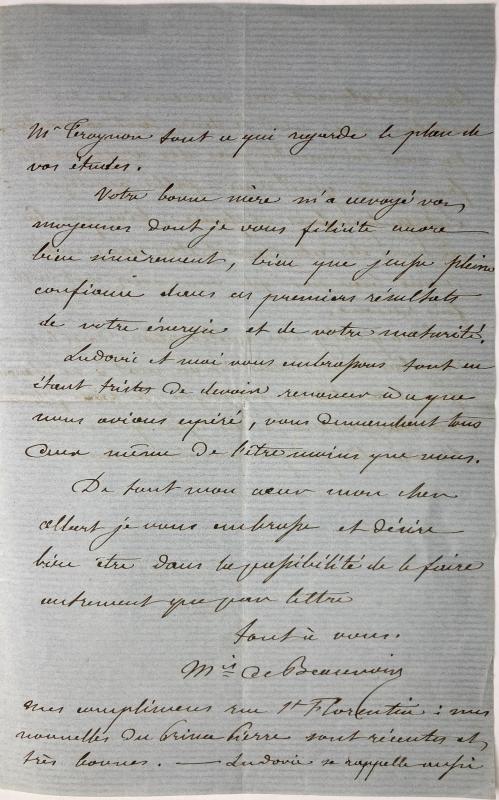 Mr Feroynon tout ce qui regarde le plan de
vos études.
Votre bonne mère m'a envoyé vos
moyennes dont je vous félicite encore
bien sincèrement, bien que j'eusse pleine
confiance dans ces premiers résultats
de votre énergie et de votre maturité.
Ludovic et moi vous embrassons tout en
étant tristes de devoir renoncer à ce que
nous avions espéré, vous demandant tous
deux même de l'être moins que nous.
De tout mon cœur mon cher
Albert je vous embrasse et désire
bien être dans la possibilité de le faire
autrement que par lettre
tout à vous.
Mis de Beauvoir
mes compliments rue St Florentin : mes
nouvelles du Prince Pierre sont récentes et
très bonnes. — Ludovic se rappelle aussi